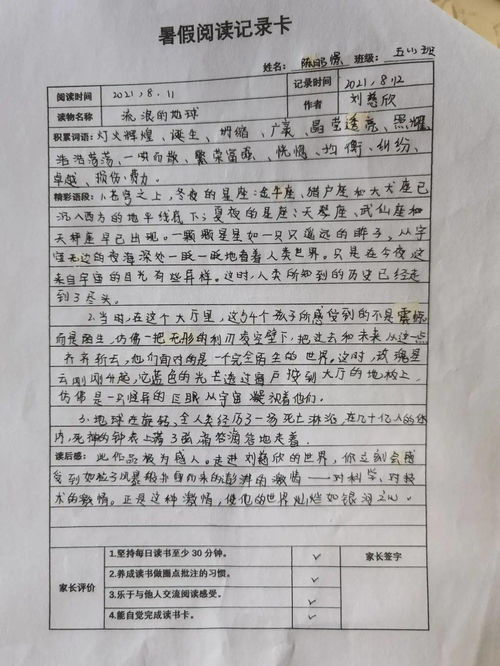 暑假阅读记录卡
姓名: 陈 班级: 五(4)班
阅读时间 2021.8.11 记录时间 2021.8.12
读物名称 流浪的地球 作者 刘慈欣
积累词语: 灯火辉煌、诞生、坍缩、广袤、晶莹透亮、照耀
浩浩荡荡、一哄而散、繁荣富强、恍惚、均衡、纠纷、
卓越、损伤、费力。
精彩语段: 1.苍穹之上,冬夜的星座:金牛座、猎户座和大犬座已
沉入西方的地平线底下;夏夜的星座:天琴座、武仙座和
天秤座早已出现。一颗颗星星如一只只遥远的眸子,从宇
宙无边的夜海深处一眨一眨地看着人类世界。只是在今夜,这
来自宇宙的目光有些异样。这时,人类所知到的历史已经走
到了尽头。
2.当时,在这个大厅里,这54个孩子所感受到的不是震惊
而是陌生,仿佛一把无形的利刃凌空劈下,把过去和未来从这一点
齐齐斩去,他们面对的是一个完全陌生的世界,这时,玫瑰星
云刚刚升起,它蓝色的光芒透过窗户投到大厅的地板上
仿佛是一只怪异的巨眼从宇宙凝视着他们。
3.地球在旋转,全人类经历了一场死亡淋浴,在几十亿人的体
内,死神的钟表上满了弦滴答滴答地走着.
读后感: 此作品极为感人。走进刘慈欣的世界,你立刻会感
受到如粒子风暴般扑面而来的澎湃的激情——对科学、对技
术的激情。正是这种激情,使他的世界灿烂如银河之心。
家长评价
1.坚持每日读书至少 30 分钟。 ✓ 家长签字
2.养成读书做圈点批注的习惯。 ✓
3.乐于与他人交流阅读感受。 ✓
4.能自觉完成读书卡。 ✓